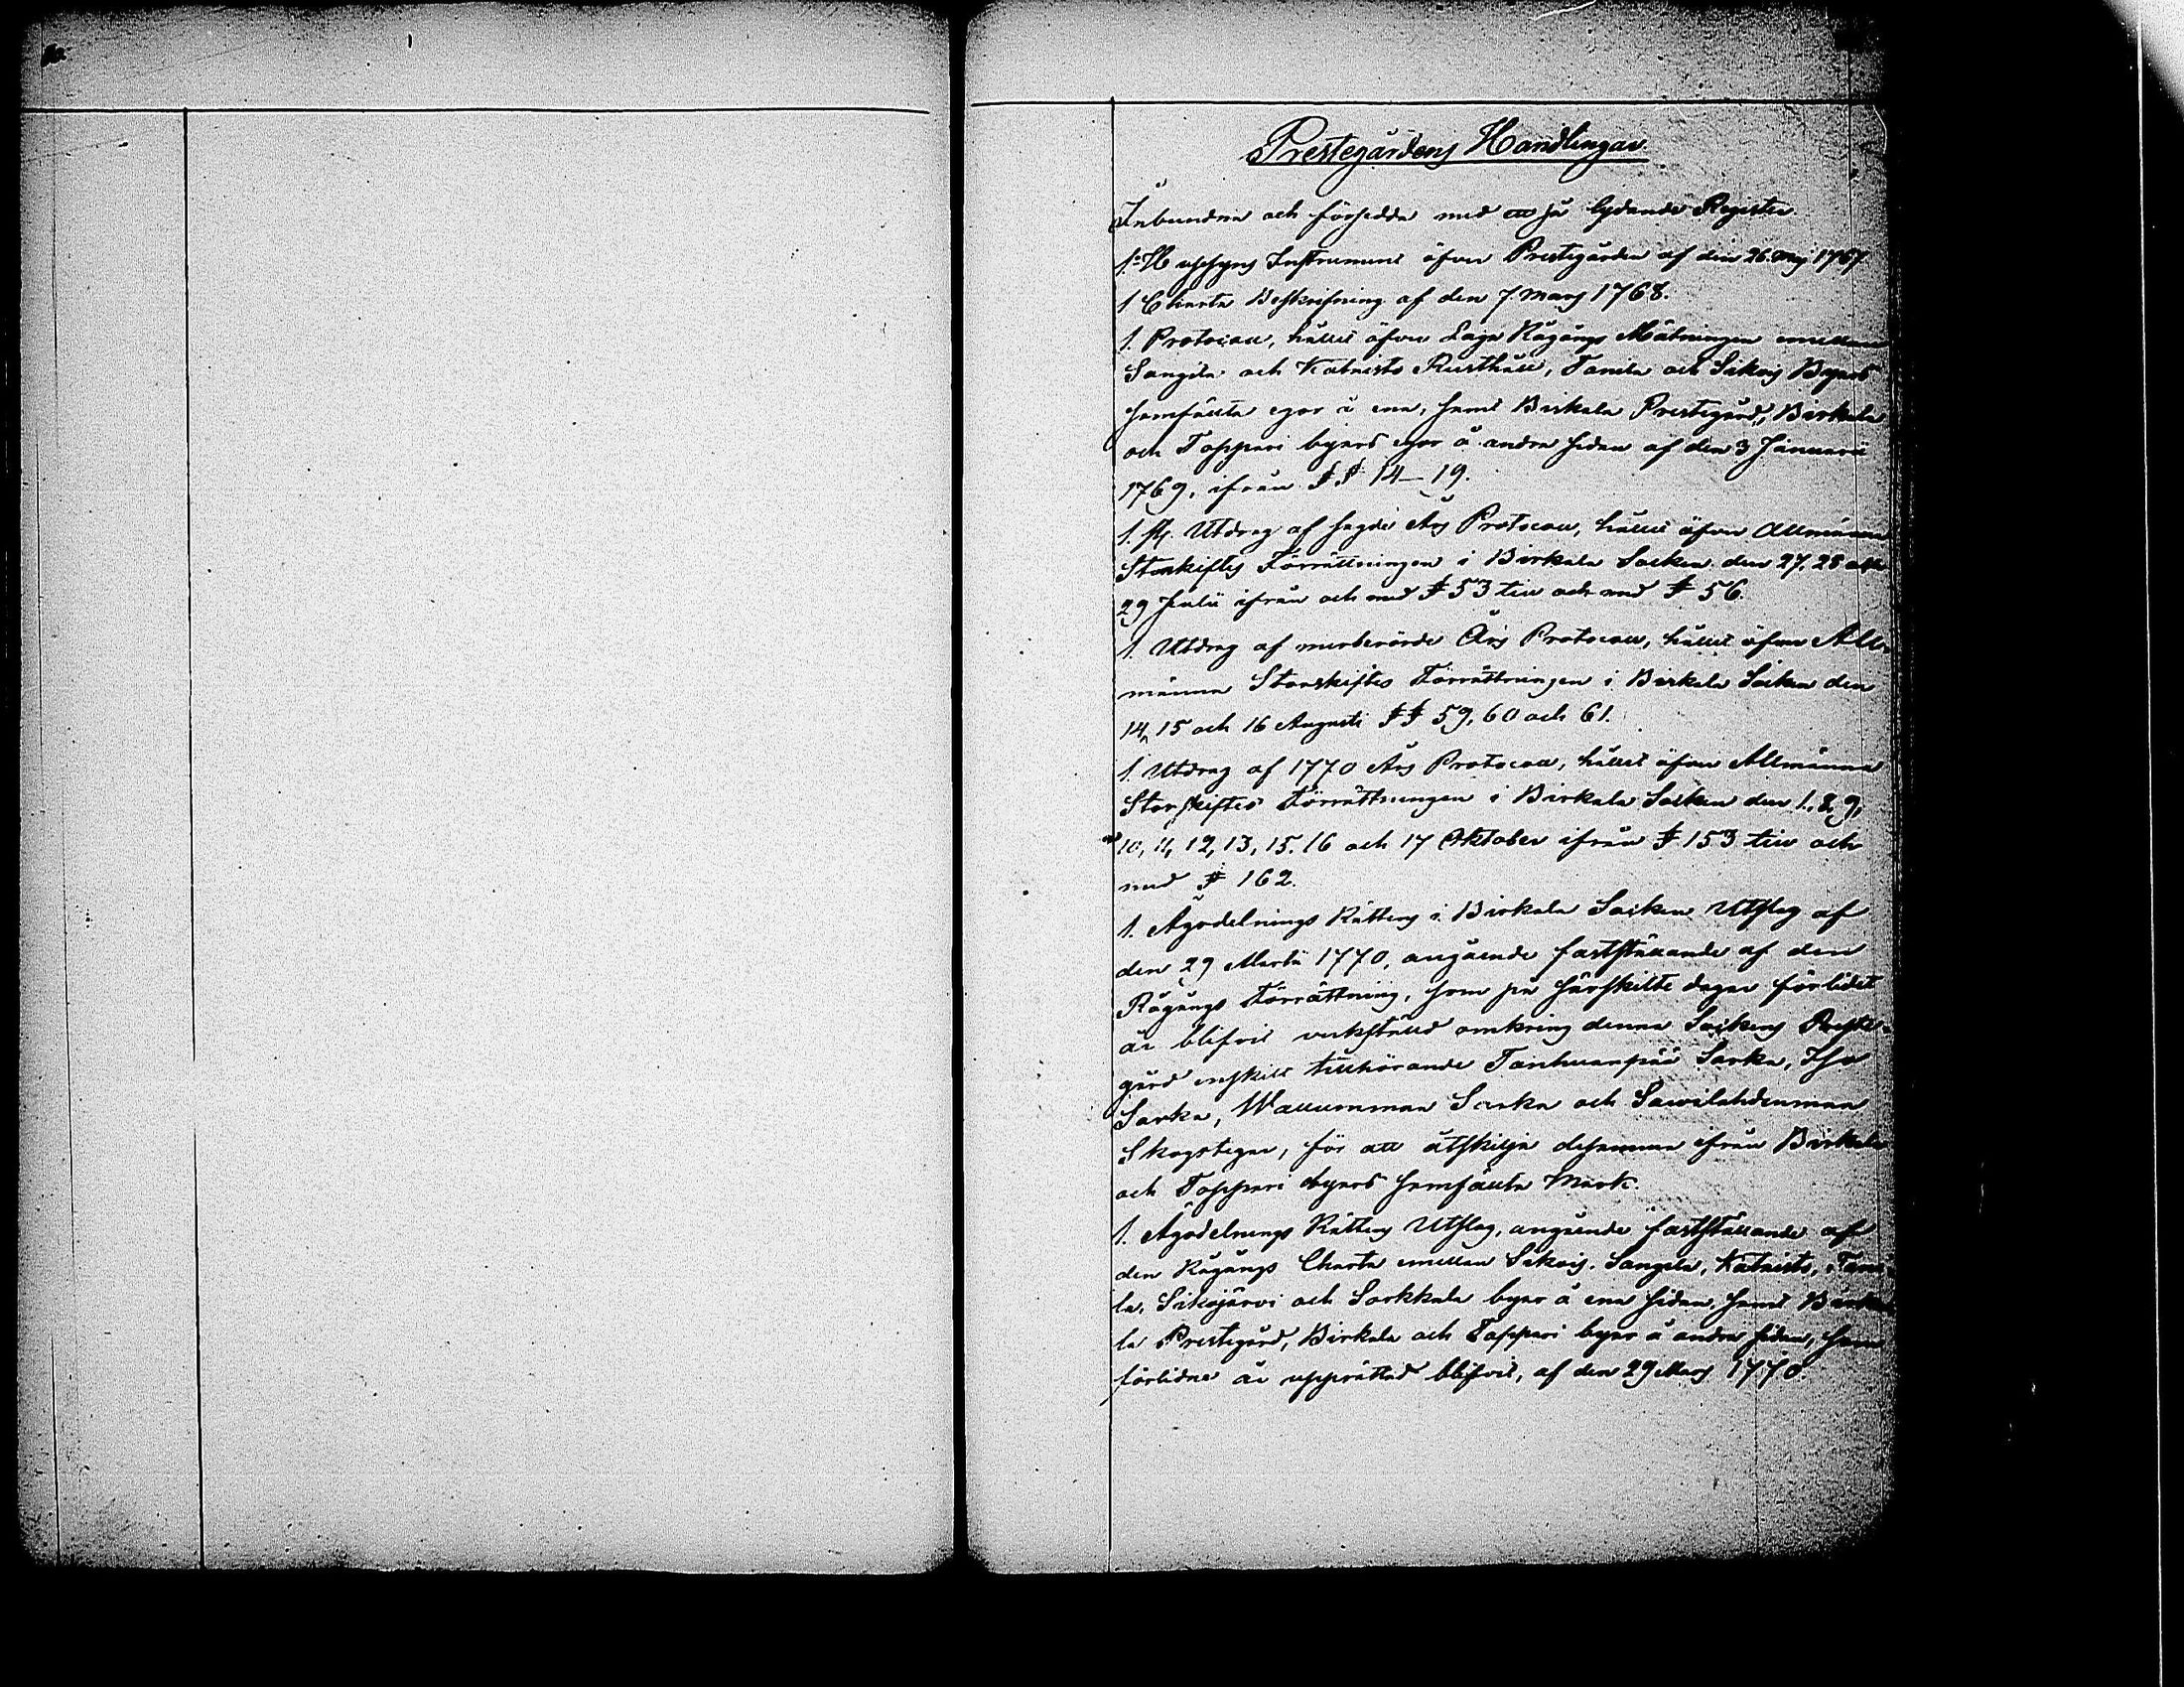 Prestegårdens Handlingar
Inbundna och försedda med ett så lydande Register.
1. st. uppsyns Instrument öfver Prestegården af den 26. Maj 1767
1 Charta Beskrifning af den 7. Mars 1768.
1. Protocoll, hållit öfver Laga Rågångs Mätningen emellan
Sangila och Kataisto Rusthåll, Tanila och Sikois Byars
samfällta egor å ena, samt Birkala Prestegård, Birkala
och Toppari byars egor å andra sidan af den 3 Januarii
1769, ifrån §§ 14–19.
1. st. Utdrag af sagde Års Protocoll, hållit öfver Allmänna
Storskiftes Förrättningen i Birkala Socken den 27, 28 och
29 Julii ifrån och med § 53 till och med § 56.
1. Utdrag af merberörde Års Protocoll, hållit öfver All-
männa Storskiftes Förrättningen i Birkala Socken den
14, 15 och 16 Augusti §§ 59, 60 och 61.
1. Utdrag af 1770 Års Protocoll, hållit öfver Allmänna
Storskiftes Förrättningen i Birkala Socken den 1, 8, 9,
10, 11, 12, 13, 15, 16 och 17 Oktober ifrån § 153 till och
med § 162.
1. Ägodelnings Rättens i Birkala Socken Utslag af
den 29 Martii 1770, angående fastställande af den
Rågångs Förrättning, som på särskilte dagar förledit
år blifvit verkställd omkring denna Sockens Preste-
gård enskilt tillhörande Tanhuanpää Sarka, Iso
Sarka, Wallunmaa Sarka och Sawilahdenmaa
Skogstegar, för att åtskilja desamma ifrån Birkala
och Toppari byars samfällta Mark.
1. Ägodelnings Rättens Utslag, angående fastställande af
den Rågångs Charta emellan Sikois, Sangila, Kataisto, Tani-
la, Sikojärvi och Sorkkala byar å ena sidan, samt Birka-
la Prestegård, Birkala och Toppari byar å andra sidan, som
förlidne år upprättad blifvit, af den 29 Mars 1770.